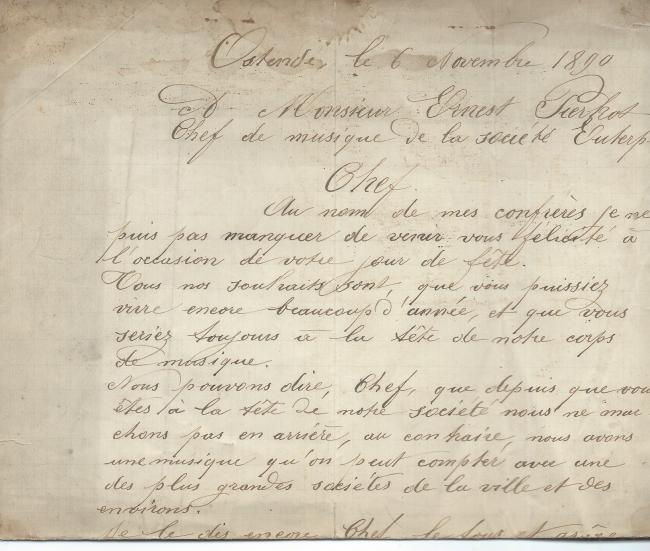 Ostende, le 6 Novembre 1890
A Monsieur Ernest Pierkot
Chef de musique de la societé Euterp
Chef.
Au nom de mes confrères je ne
puis pas manquer de venir vous félicité à
l'occasion de votre jour de fête.
Tous nos souhaits sont, que vous puissiez
vivre encore beaucoup d'année, et que vous
seriez toujours à la tête de notre corps
de musique.
Nous pouvons dire, Chef, que depuis que vou
êtes à la tête de notre société nous ne mar
chons pas en arrière, au contraire, nous avons
une musique qu'on peut compter avec une
des plus grandes sociétés de la ville et des
environs.
Je le dis encore Chef le tous et